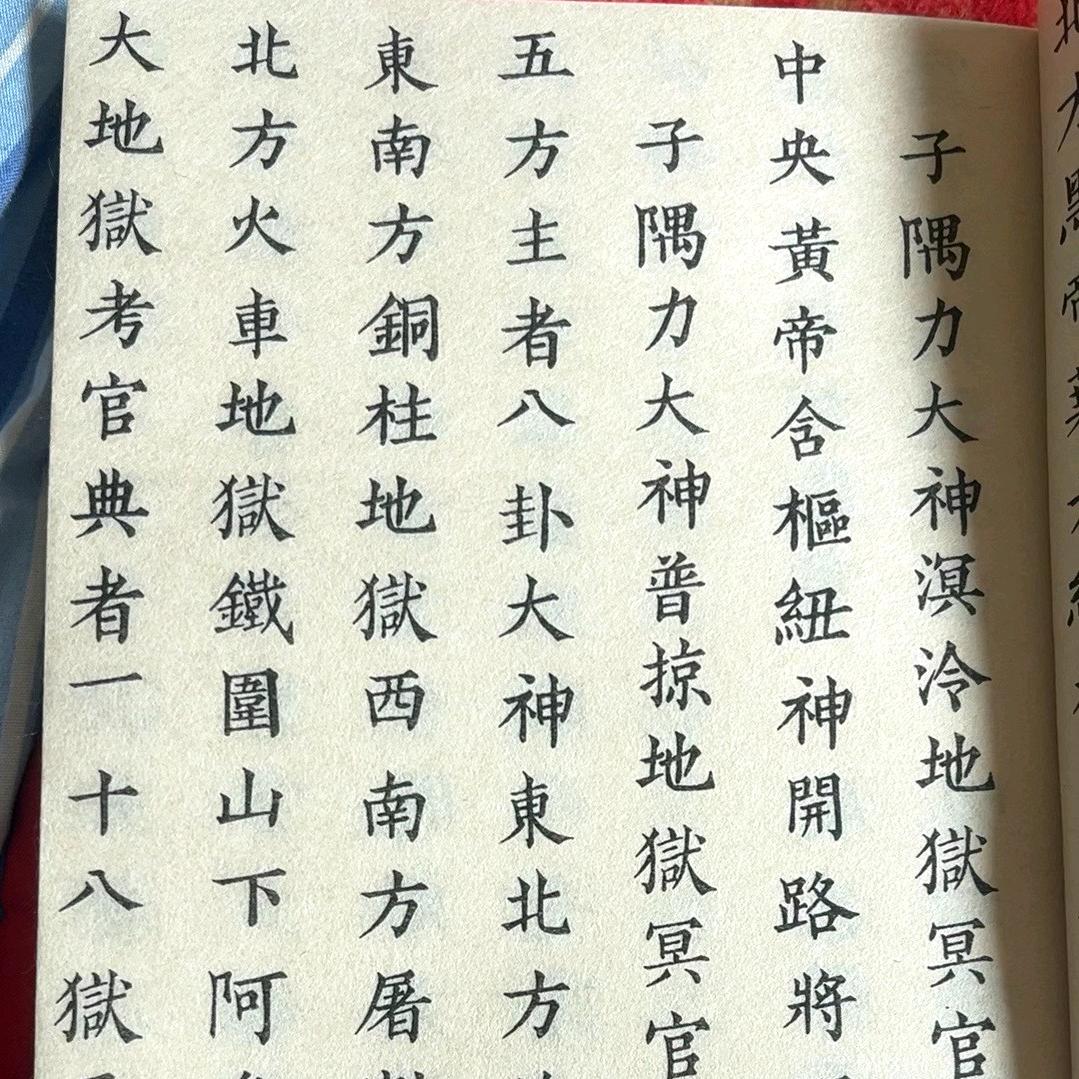 子隅力大神溟泠地獄冥官
中央黃帝含樞紐神開路將
子隅力大神普掠地獄冥官
五方主者八卦大神東北方
東南方銅柱地獄西南方屠
北方火車地獄鐵圍山下阿
大地獄考官典者一十八獄